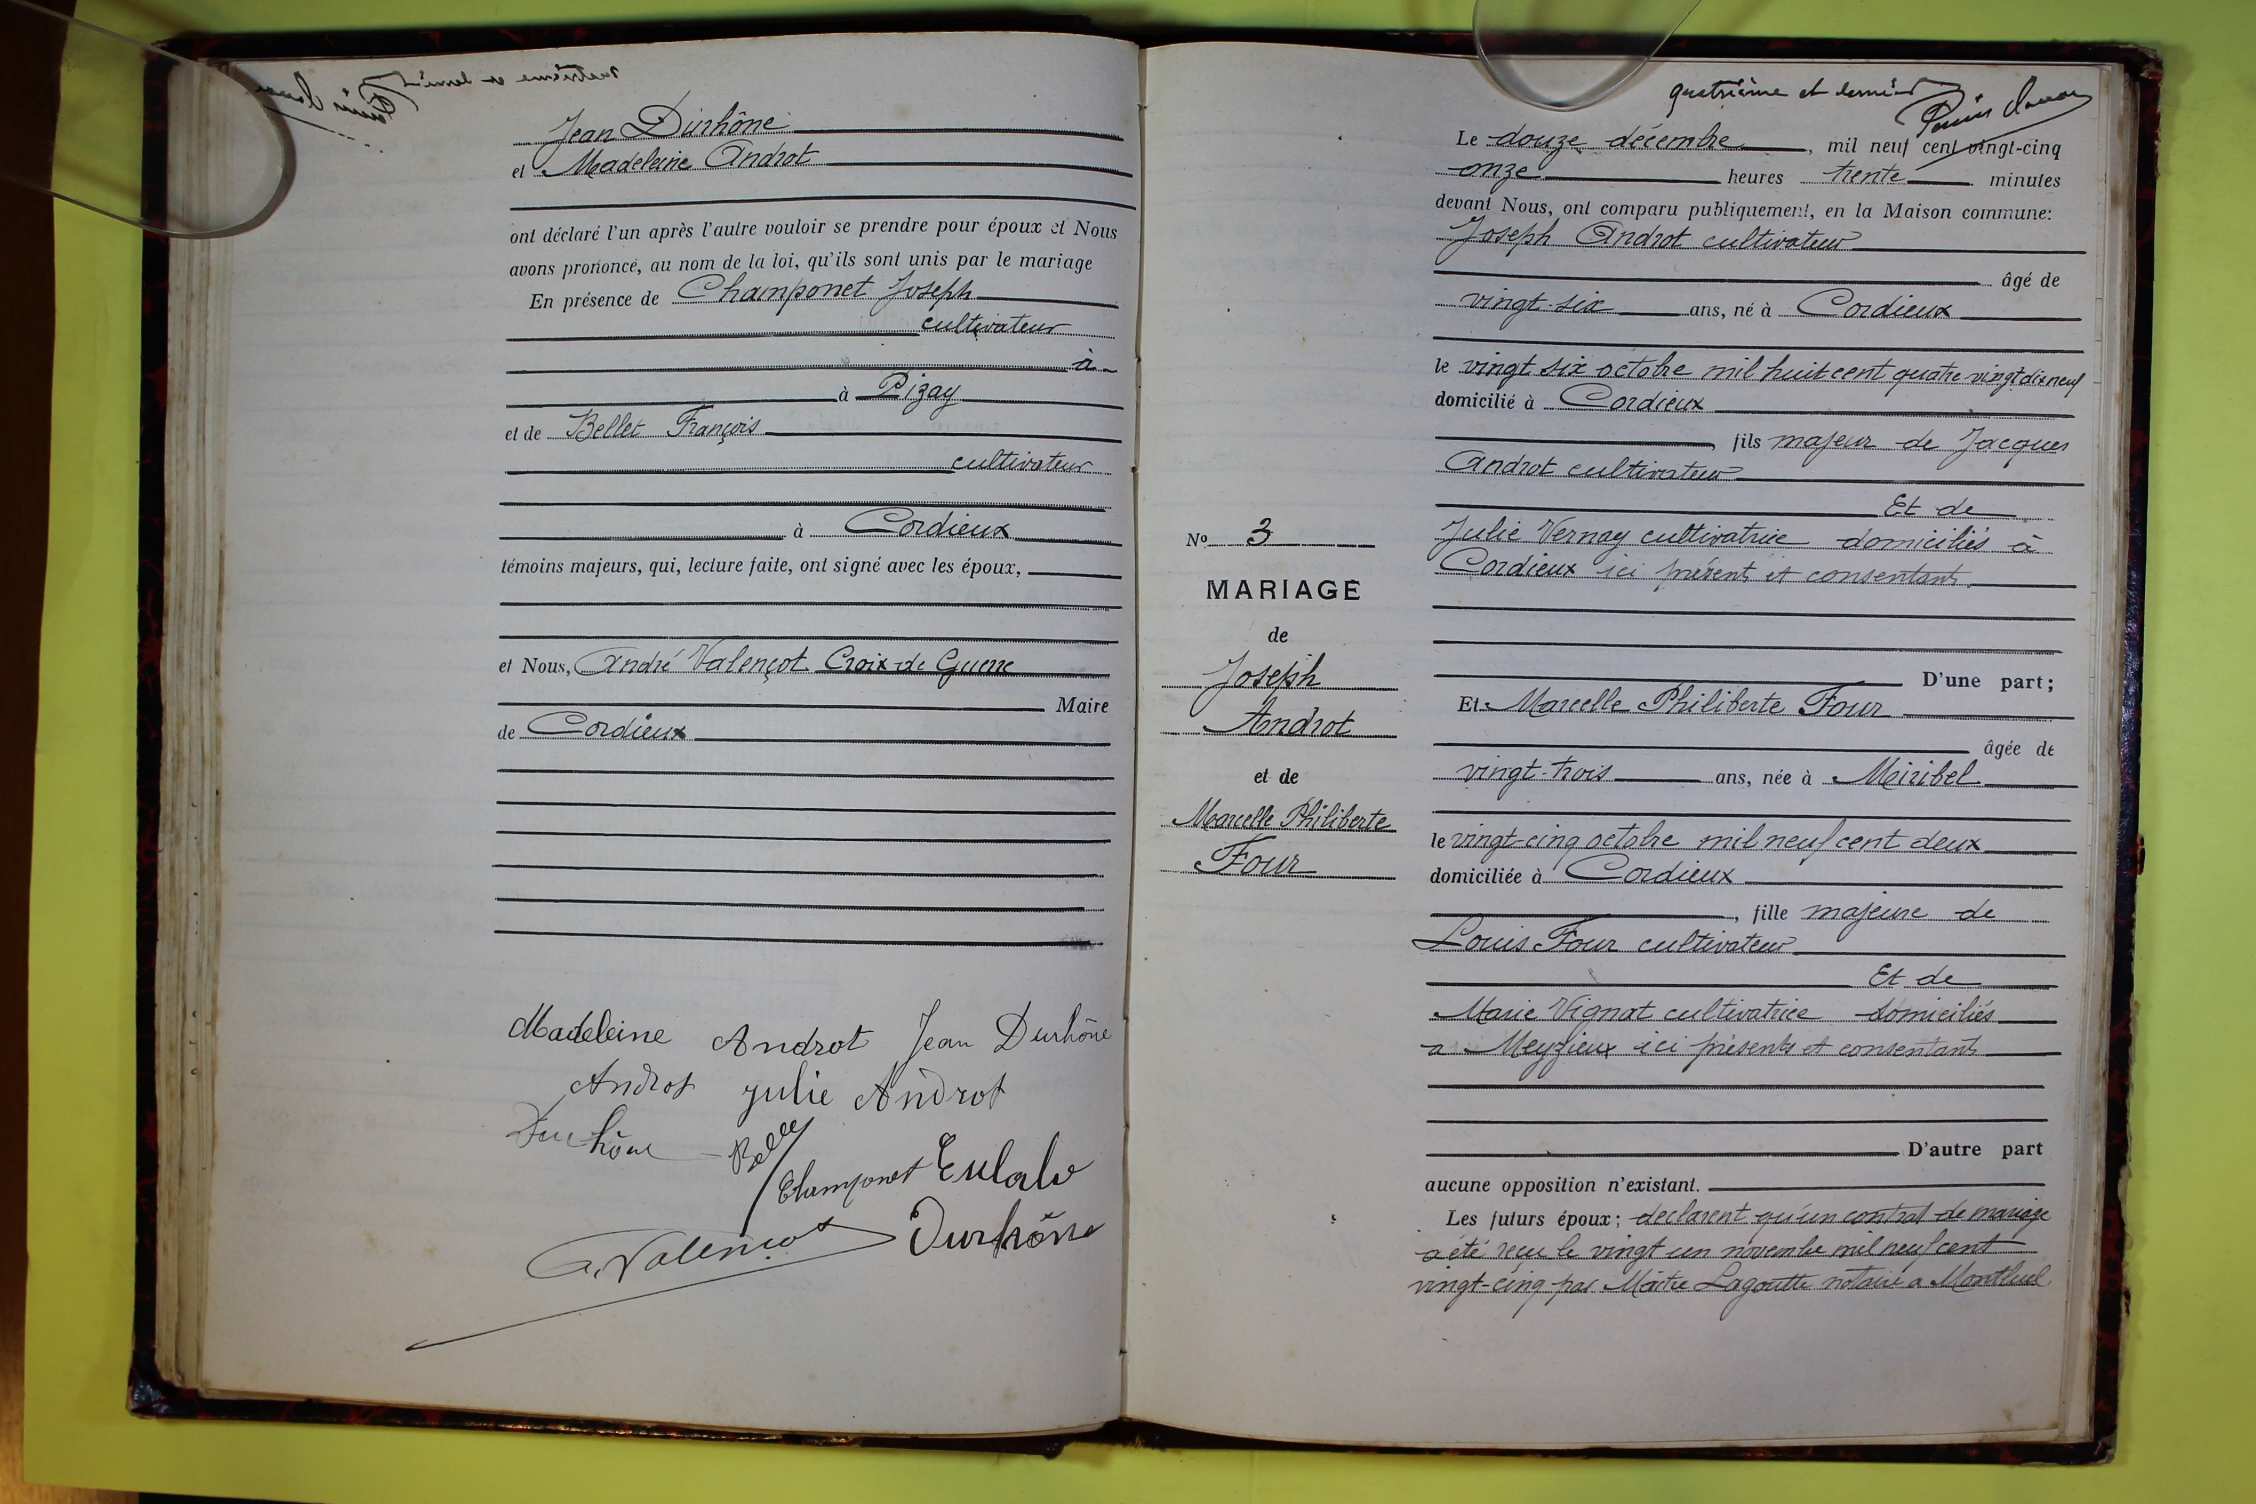 Jean Durhône
et Madeleine Androt
ont déclaré l'un après l'autre vouloir se prendre pour époux et Nous
avons prononcé, au nom de la loi, qu'ils sont unis par le mariage
En présence de Champonet Joseph
cultivateur
à
à Pizay
et de Bellet François
cultivateur
à Cordieux
témoins majeurs, qui, lecture faite, ont signé avec les époux,
et Nous, André Valençot Croix de Guerre
Maire
de Cordieux
Madeleine Androt Jean Durhône
Androt Julie Androt
Durhône
Champonet Eulalie
A. Valençot Durhône
quatrième et dernier
Le douze décembre, mil neuf cent vingt-cinq
onze heures trente minutes
devant Nous, ont comparu publiquement, en la Maison commune:
Joseph Androt cultivateur
âgé de
vingt-six ans, né à Cordieux
le vingt six octobre mil huit cent quatre vingt dix neuf
domicilié à Cordieux
, fils majeur de Jacques
Androt cultivateur
Et de
Julie Vernay cultivatrice domiciliés à
Cordieux ici présents et consentants
D'une part;
Et Marcelle Philiberte Four
âgée de
vingt-trois ans, née à Miribel
le vingt-cinq octobre mil neuf cent deux
domiciliée à Cordieux
, fille majeure de
Louis Four cultivateur
Et de
Marie Vignat cultivatrice domiciliés
a Meyzieux ici présents et consentants
D'autre part
aucune opposition n'existant.
Les futurs époux; declarent qu'un contrat de mariage
a été reçu le vingt un novembre mil neuf cent
vingt-cinq par Maître Lagoutte notaire a Montluel
No 3
MARIAGE
de
Joseph
Androt
et de
Marcelle Philiberte
Four